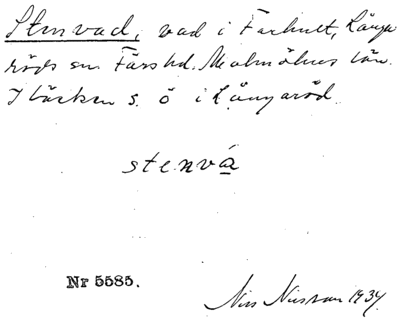 Stenvad, vad i Farhult, Långa
röds sn Färs hd. Malmöhus län.
I bäcken s. ö i Långaröd.
stenvá
Nr 5585.
Nils Nilsson 1934